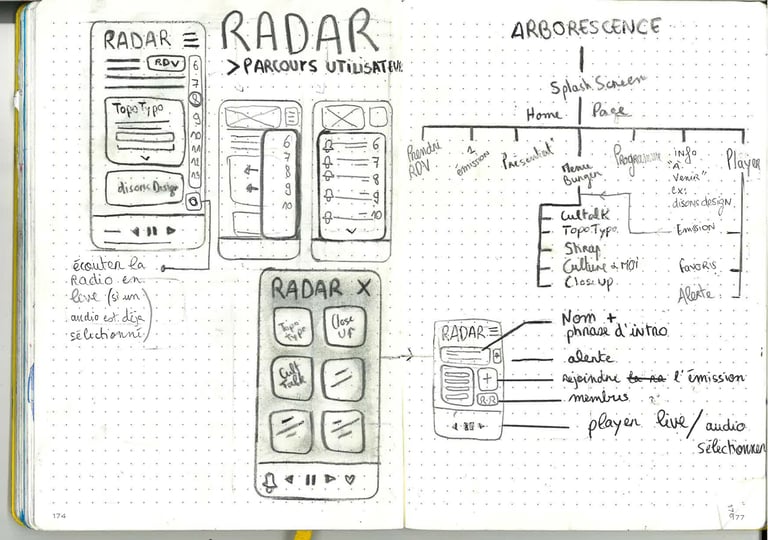 RADAR
RDV
6
7
8
9
10
11
12
13
TopoTypo
disons Design
écouter la
Radio en
live (si un
audio est déjà
sélectionné)
RADAR
> PARCOURS UTILISATEUR
6
7
8
9
10
6
7
8
9
10
RADAR X
Topo
Type
Close
Up
Cult
Talk
174
ARBORESCENCE
Splash Screen
Home Page
Prendre
RDV
1
émission
Présentat°
Menu
Burger
Programme
info
"à
venir"
ex:
disons design
Player
Cultalk
TopoTypo
Strap
Culture & MOI
Close up
Emission
favoris
Alerte
RADAR
+
+
Nom +
phrase d'intro
alerte
Rejoindre l'émission
membres
player live / audio
sélectionner